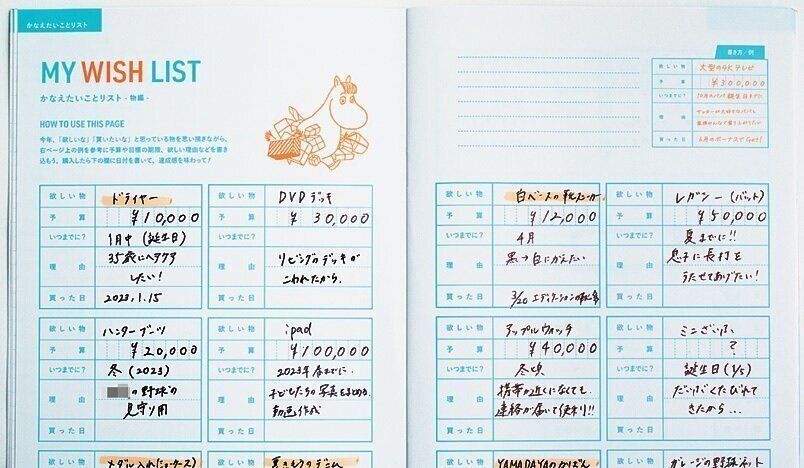 かなえたいことリスト
MY WISH LIST
かなえたいことリスト - 物編 -
HOW TO USE THIS PAGE
今年、「欲しいな」「買いたいな」と思っている物を思い描きながら、
右ページ上の例を参考に予算や目標の期限、欲しい理由などを書き
込もう。購入したら下の欄に日付を書いて、達成感を味わって！
欲しい物 ドライヤー
予算 ¥10,000
いつまでに? 1月中 (誕生日)
理由 35歳にヘアケア
したい!
買った日 2023.1.15
欲しい物 DVDデッキ
予算 ¥30,000
いつまでに?
理由 リビングのデッキが
こわれたから.
買った日
欲しい物 ハンターブーツ
予算 ¥20,000
いつまでに? 冬 (2023)
理由 の野球の
見守り用
買った日
欲しい物 ipad
予算 ¥100,000
いつまでに? 2023年春までに.
理由 子どもたちの写真をまとめる.
動画作成
買った日
メダル入れ
書き方／例
欲しい物 大型の4Kテレビ
予算 ¥300,000
いつまでに? 10月のパパの誕生日までに
理由 サッカーが大好きなパパと
家族みんなで盛り上がりたい
買った日 6月のボーナスでGet!
欲しい物 白ベースの
予算 ¥12,000
いつまでに? 4月
理由 黒→白にかえたい
買った日 3/20
欲しい物 レガシー (バット)
予算 ¥50,000
いつまでに? 夏までに!!
理由 息子に長打を
うたせてあげたい!
買った日
欲しい物 アップルウォッチ
予算 ¥40,000
いつまでに? 冬頃
理由 携帯が近くになくても
連絡が届いて便利!!
買った日
欲しい物 ミニさいふ
予算 ?
いつまでに? 誕生日 (1/5)
理由 だいぶくたびれて
きたから...
買った日
YAMADAYAのかばん
ガレージの野球ネット